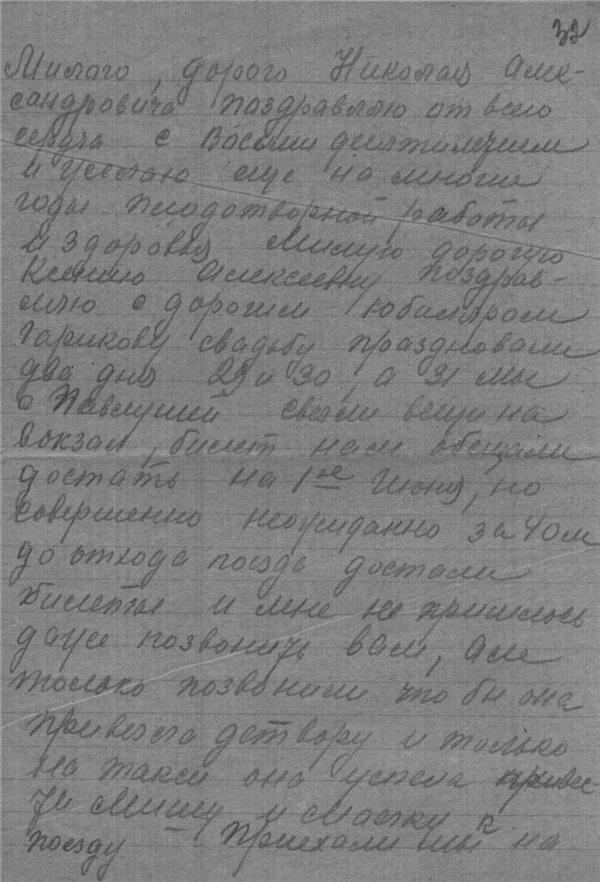 32
Милого, дорого Николая Алек-
сандровича поздравляю от всего
сердца с Восьми десятилетием
и желаю еще на многи
годы плодотворной работы
и здоровья Милую дорогую
Ксению Алексеевну поздрав-
ляю с дорогим юбиляром
Гарикову свадьбу праздновали
два дня 29 и 30, а 31 мы
с Павлушей свезли вещи на
вокзал, билет нам обещали
достать на 1ое Июня, но
совершенно неожиданно за 40 м
до отхода поезда достали
билеты и мне не пришлось
даже позвонить вам, Але
только позвонили что бы она
привезла детвору и только
на такси она успела привес-
ти Мишу и к
поезду – Приехали мы на